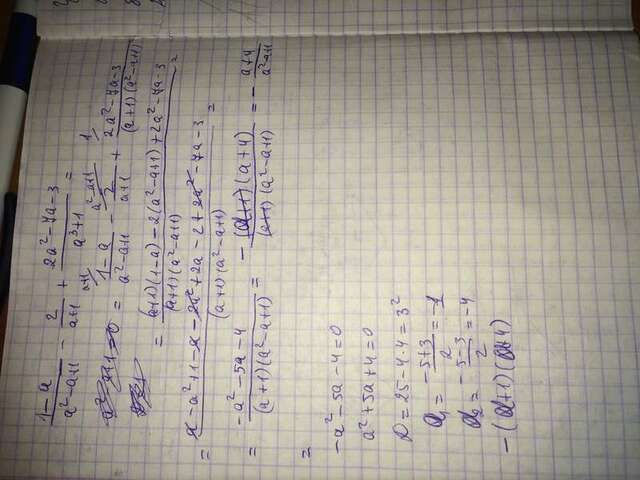 1-a/a²-a+1 - 2/a+1 + 2a²-7a-3/a³+1 =
= 1-a/a²-a+1 - 2/a+1 + 2a²-7a-3/(a+1)(a²-a+1)
= (a+1)(1-a)-2(a²-a+1)+2a²-7a-3/(a+1)(a²-a+1) =
= a-a²+1-a-2a²+2a-2+2a²-7a-3/(a+1)(a²-a+1) =
= -a²-5a-4/(a+1)(a²-a+1) = - (a+1)(a+4)/(a+1)(a²-a+1) = - a+4/a²-a+1
=
-a²-5a-4=0
a²+5a+4=0
D=25-4·4=3²
a₁ = -5+3/2 = -1
a₂ = -5-3/2 = -4
-(a+1)(a+4)